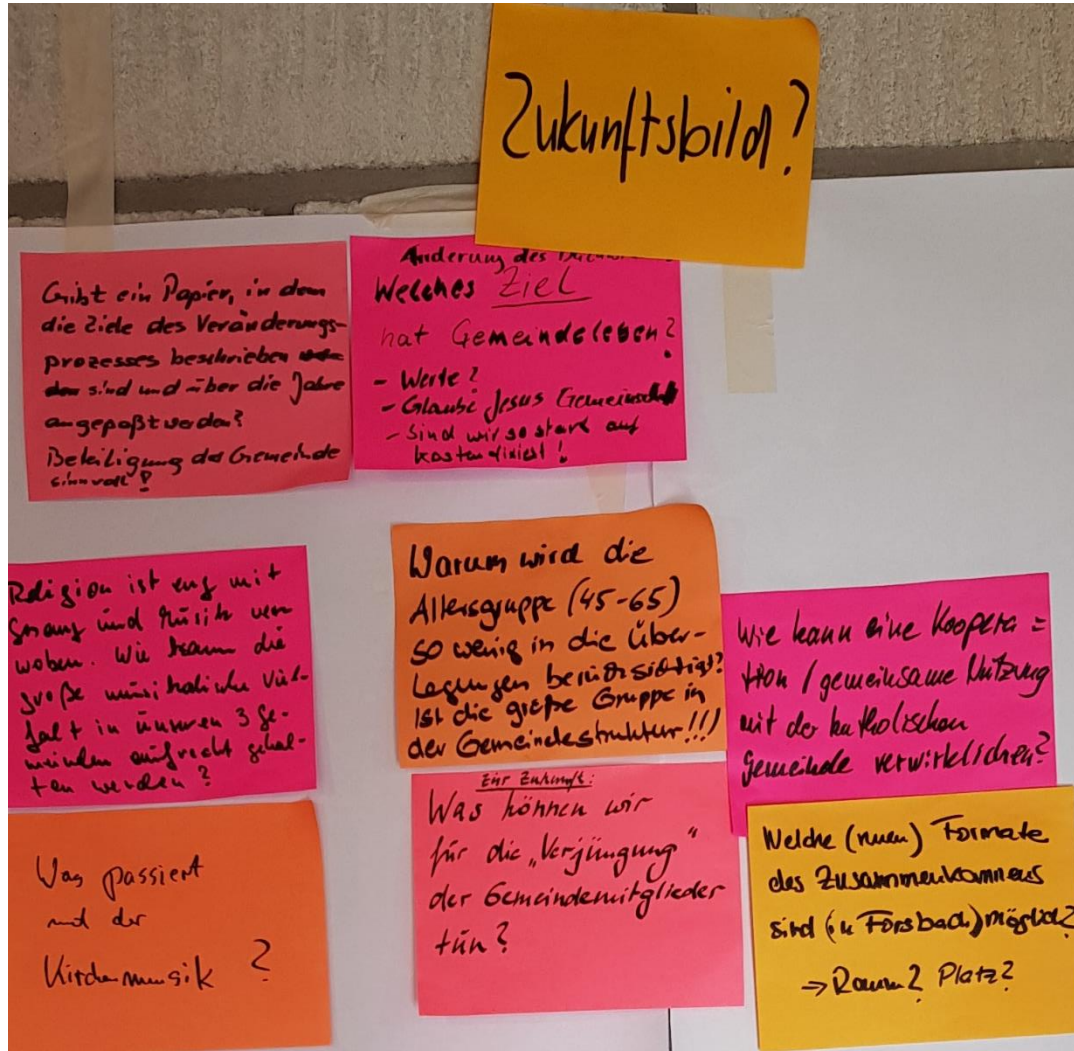 Zukunftsbild?
Gibt ein Papier, in dem
die Ziele des Veränderungs-
prozesses beschrieben
sind und über die Jahre
angepaßt werden?
Beteiligung der Gemeinde
sinnvoll?
Änderung des
Welches Ziel
hat Gemeindeleben?
- Werte?
- Glaube Jesus Gemeinschaft
- Sind wir so stark auf
Kosten fixiert!
Religion ist eng mit
Gesang und Musik ver
woben. Wie kann die
große musikalische Viel-
falt in unseren 3 Ge-
meinden aufrecht gehal-
ten werden?
Warum wird die
Altersgruppe (45-65)
so wenig in die Über-
legungen berücksichtigt?
Ist die größte Gruppe in
der Gemeindestruktur!!!
Wie kann eine Koopera=
tion / gemeinsame Nutzung
mit der katholischen
Gemeinde verwirklichen?
Was passiert
mit der
Kirchenmusik?
Zur Zukunft:
Was können wir
für die „Verjüngung"
der Gemeindemitglieder
tun?
Welche (neuen) Formate
des Zusammenkommens
sind (in Forsbach) möglich?
→ Raum? Platz?